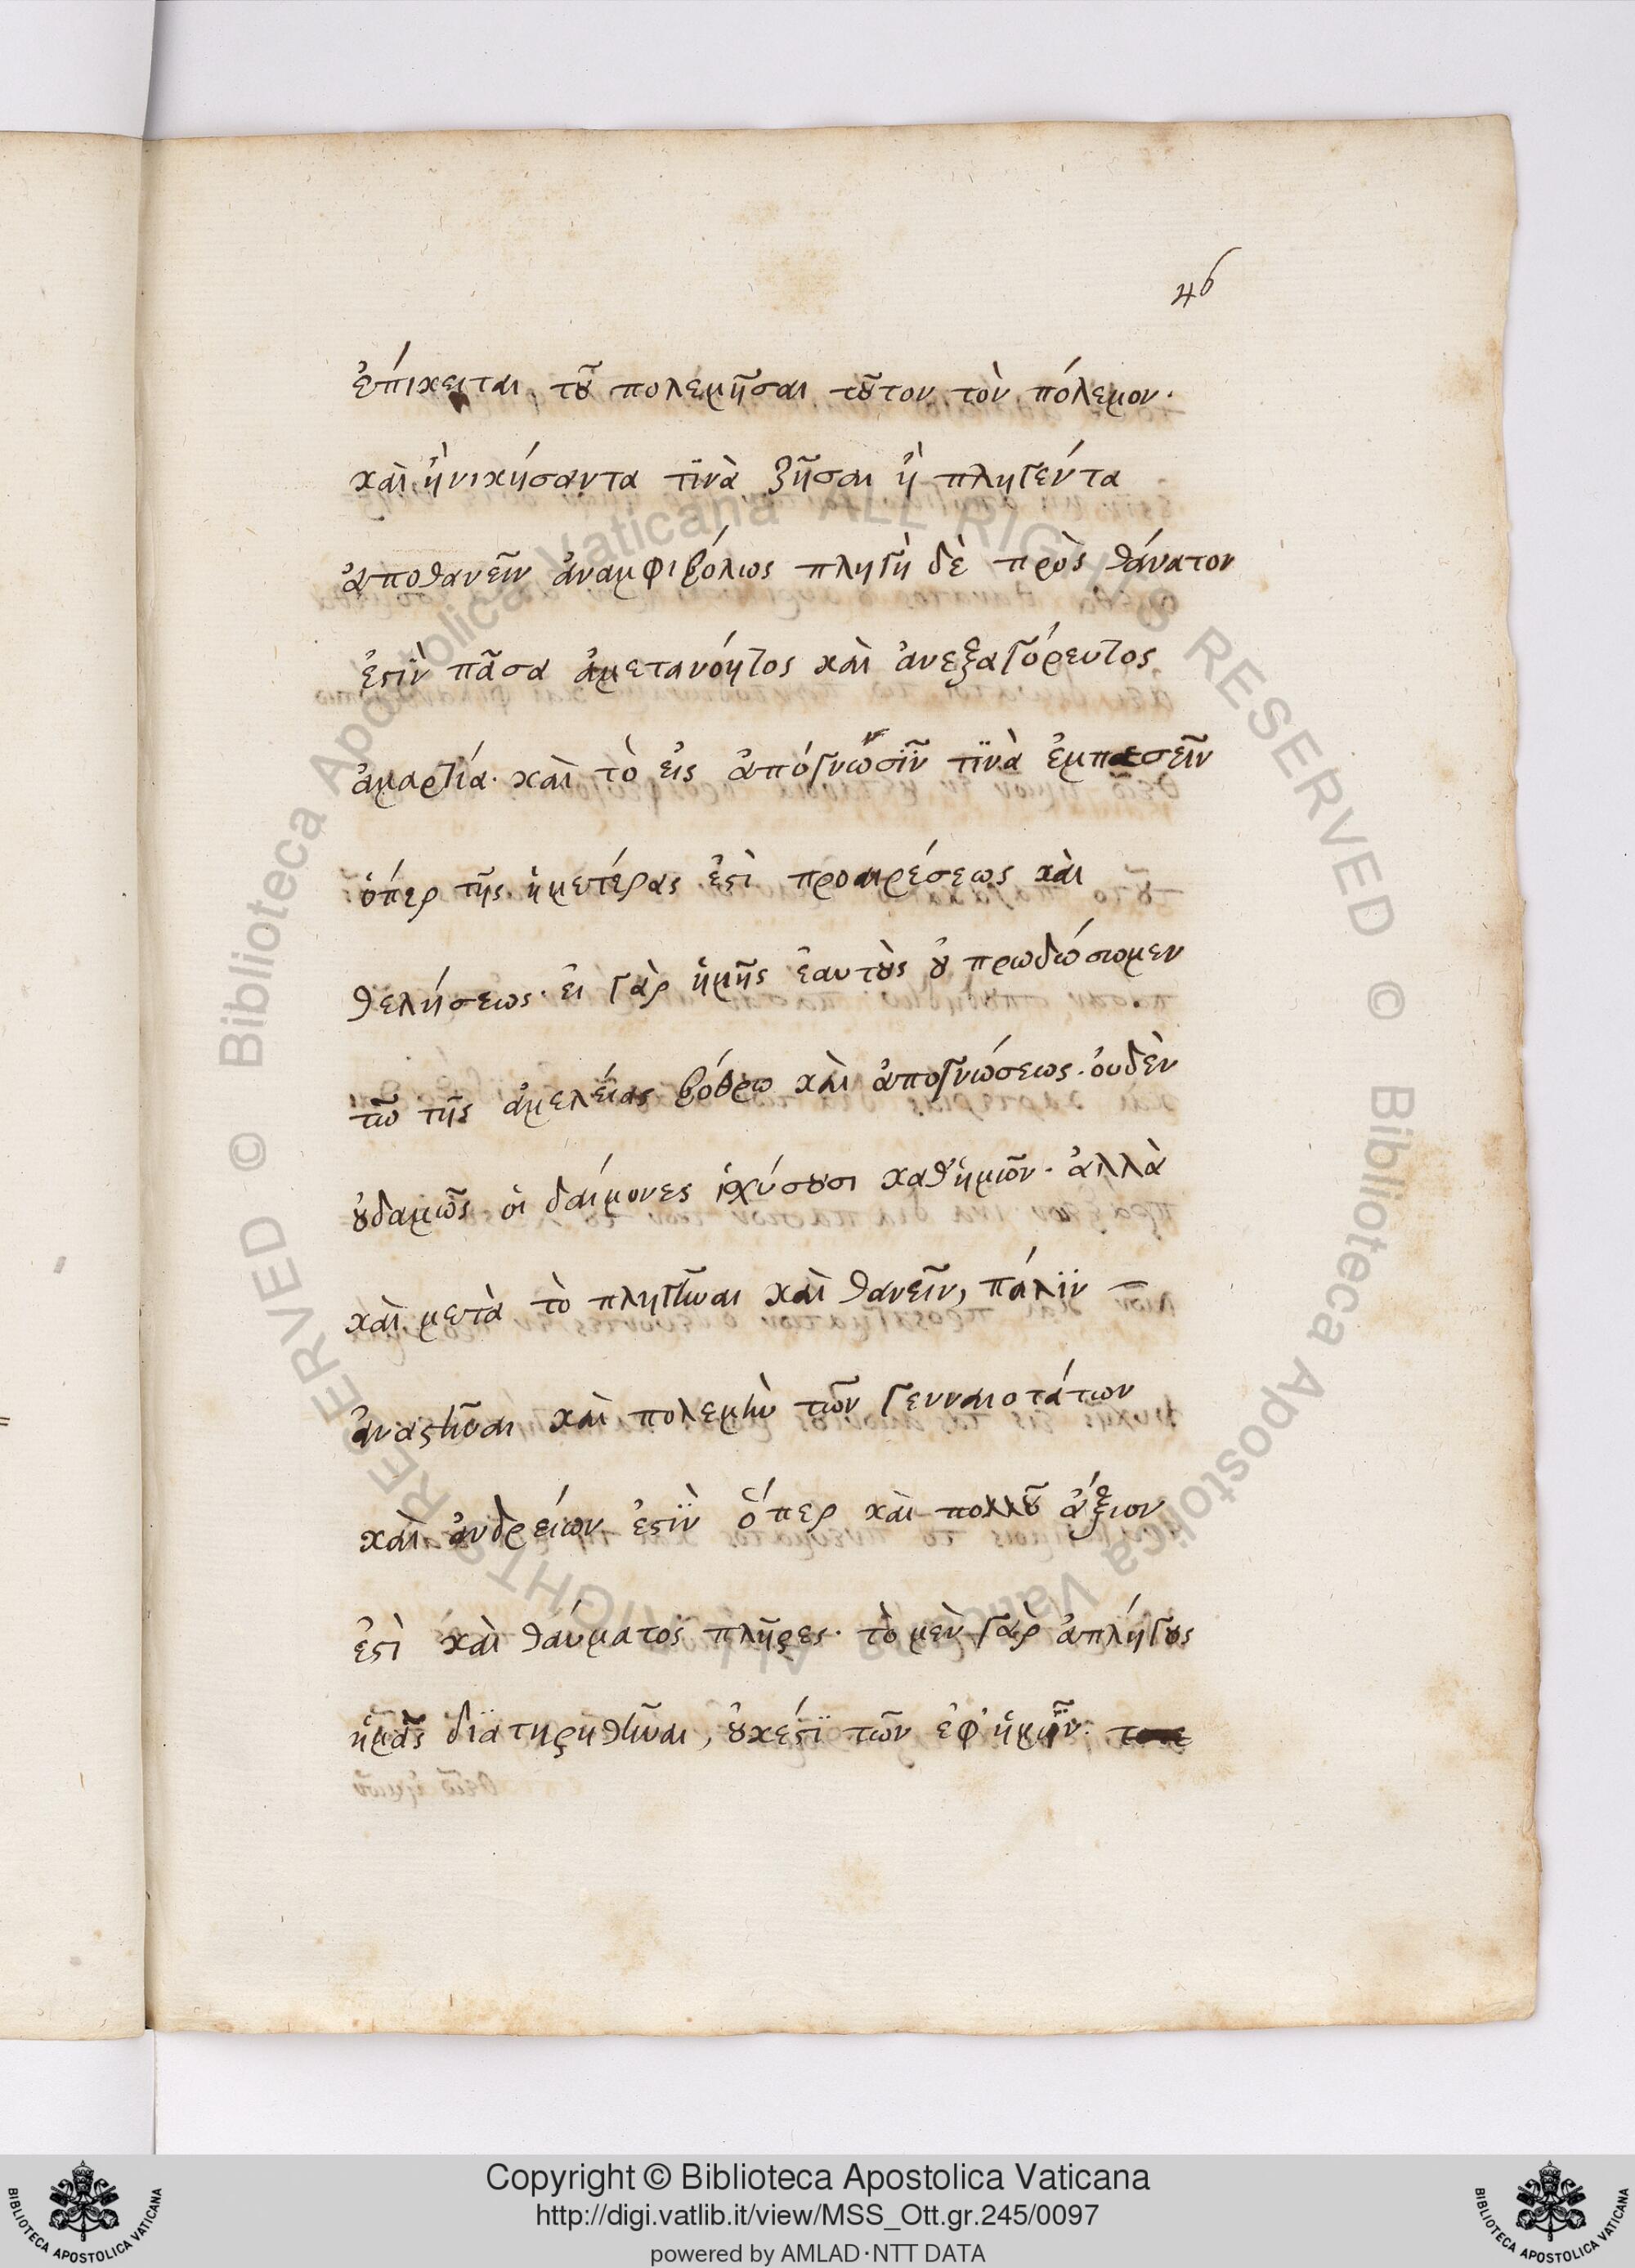 46
ἐπίκειται, τοῦ πολεμῆσαι τοῦτον τὸν πόλεμον·
καὶ ἢ νικήσαντα τϊνὰ ζῆσαι ἢ πληγέντα
ἀποθανεῖν ἀναμφιβόλως πληγὴ δὲ πρὸς θάνατον
ἐστὶν πᾶσα ἀμετανόητος καὶ ἀνεξαγόρευτος
ἁμαρτία· καὶ τὸ εἰς ἀπόγνωσϊν τϊνὰ ἐμπεσεῖν
ὁπερ τῆς ἡμετέρας ἐστὶ προαιρέσεως καὶ
θελήσεως· εἰ γὰρ ἡμῆς ἑαυτοὺς οὐ πρωδώσωμεν
τῶ τῆς ἀμελείας βόθρω καὶ ἀπογνώσεως· οὐδὲν
οὐδαμῶς οἱ δαίμονες ἰσχύσουσι καθ' ἡμῶν· ἀλλὰ
καὶ μετὰ τὸ πληγῆναι καὶ θανεῖν, πάλϊν
ἀναστῆναι καὶ πολεμὴν τῶν γενναιοτάτων
καὶ ἀνδρείων ἐστϊν ὅπερ καὶ πολλοῦ ἄξιον
ἐστὶ καὶ θάυματος πλῆρες· τὸ μὲν γὰρ ἀπλήγους
ἡμᾶς δϊατηρηθῆναι, οὐκέστϊ τῶν ἐφ' ἡμῖν·
Copyright © Biblioteca Apostolica Vaticana
http://digi.vatlib.it/view/MSS_Ott.gr.245/0097
powered by AMLAD·NTT DATA
BIBLIOTECA APOSTOLICA VATICANA
BIBLIOTECA APOSTOLICA VATICANA
© Biblioteca Apostolica Vaticana ALL RIGHTS RESERVED © Biblioteca Apostolica Vaticana ALL RIGHTS RESERVED